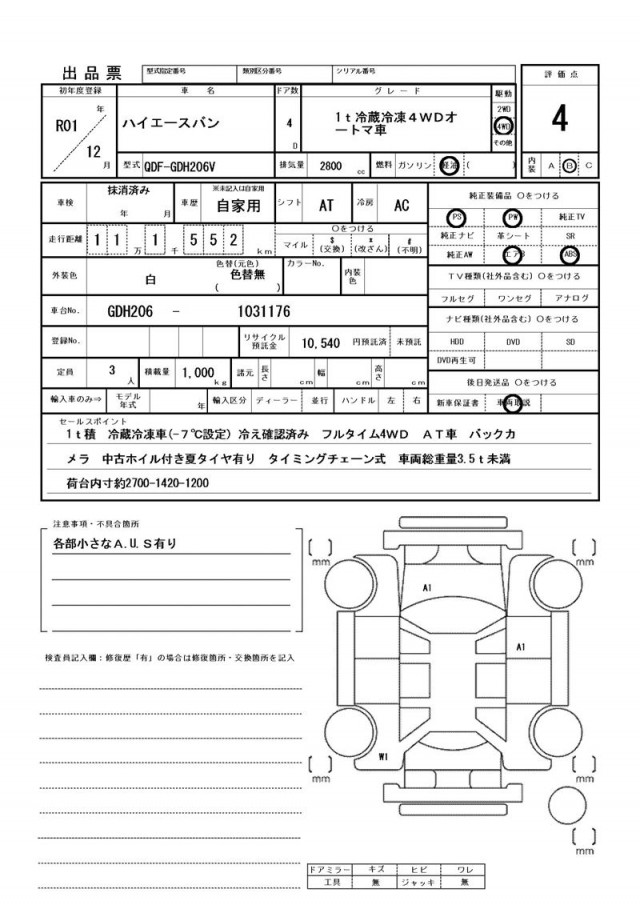 出品票 型式指定番号 類別区分番号 シリアル番号
評価点
4
初年度登録 車名 ドア数 グレード 駆動
R01 年 12 月
ハイエースバン 4 D
1t冷蔵冷凍4WDオ
ートマ車
2WD
4WD
その他
型式 QDF-GDH206V 排気量 2800 cc 燃料 ガソリン 軽油 ( )
内装 A B C
車検 抹消済み 年 月 車歴 ※未記入は自家用 自家用 シフト AT 冷房 AC
走行距離 11万1千552km マイル $(交換) *(改ざん) #(不明)
〇をつける
外装色 白 色替(元色) 色替無 ( ) カラーNo. 内装色
車台No. GDH206 - 1031176
登録No. リサイクル預託金 10,540 円預託済 未預託
定員 3 人 積載量 1,000 kg 諸元 長さ cm 幅 cm 高さ cm
輸入車のみ⇒ モデル年式 年 輸入区分 ディーラー 並行 ハンドル 左 右
純正装備品 〇をつける
PS PW 純正TV
純正ナビ 革シート SR
純正AW エアB ABS
TV種類(社外品含む) 〇をつける
フルセグ ワンセグ アナログ
ナビ種類(社外品含む) 〇をつける
HDD DVD SD
DVD再生可
後日発送品 〇をつける
新車保証書 車両取説
セールスポイント
1t積 冷蔵冷凍車(-7℃設定) 冷え確認済み フルタイム4WD AT車 バックカ
メラ 中古ホイル付き夏タイヤ有り タイミングチェーン式 車両総重量3.5t未満
荷台内寸約2700-1420-1200
注意事項・不具合箇所
各部小さなA.U.S有り
検査員記入欄：修復歴「有」の場合は修復箇所・交換箇所を記入
[ ] mm [ ] mm
A1
A1
W1
[ ] mm [ ] mm
[ ] mm
ドアミラー キズ ヒビ ワレ
工具 無 ジャッキ 無